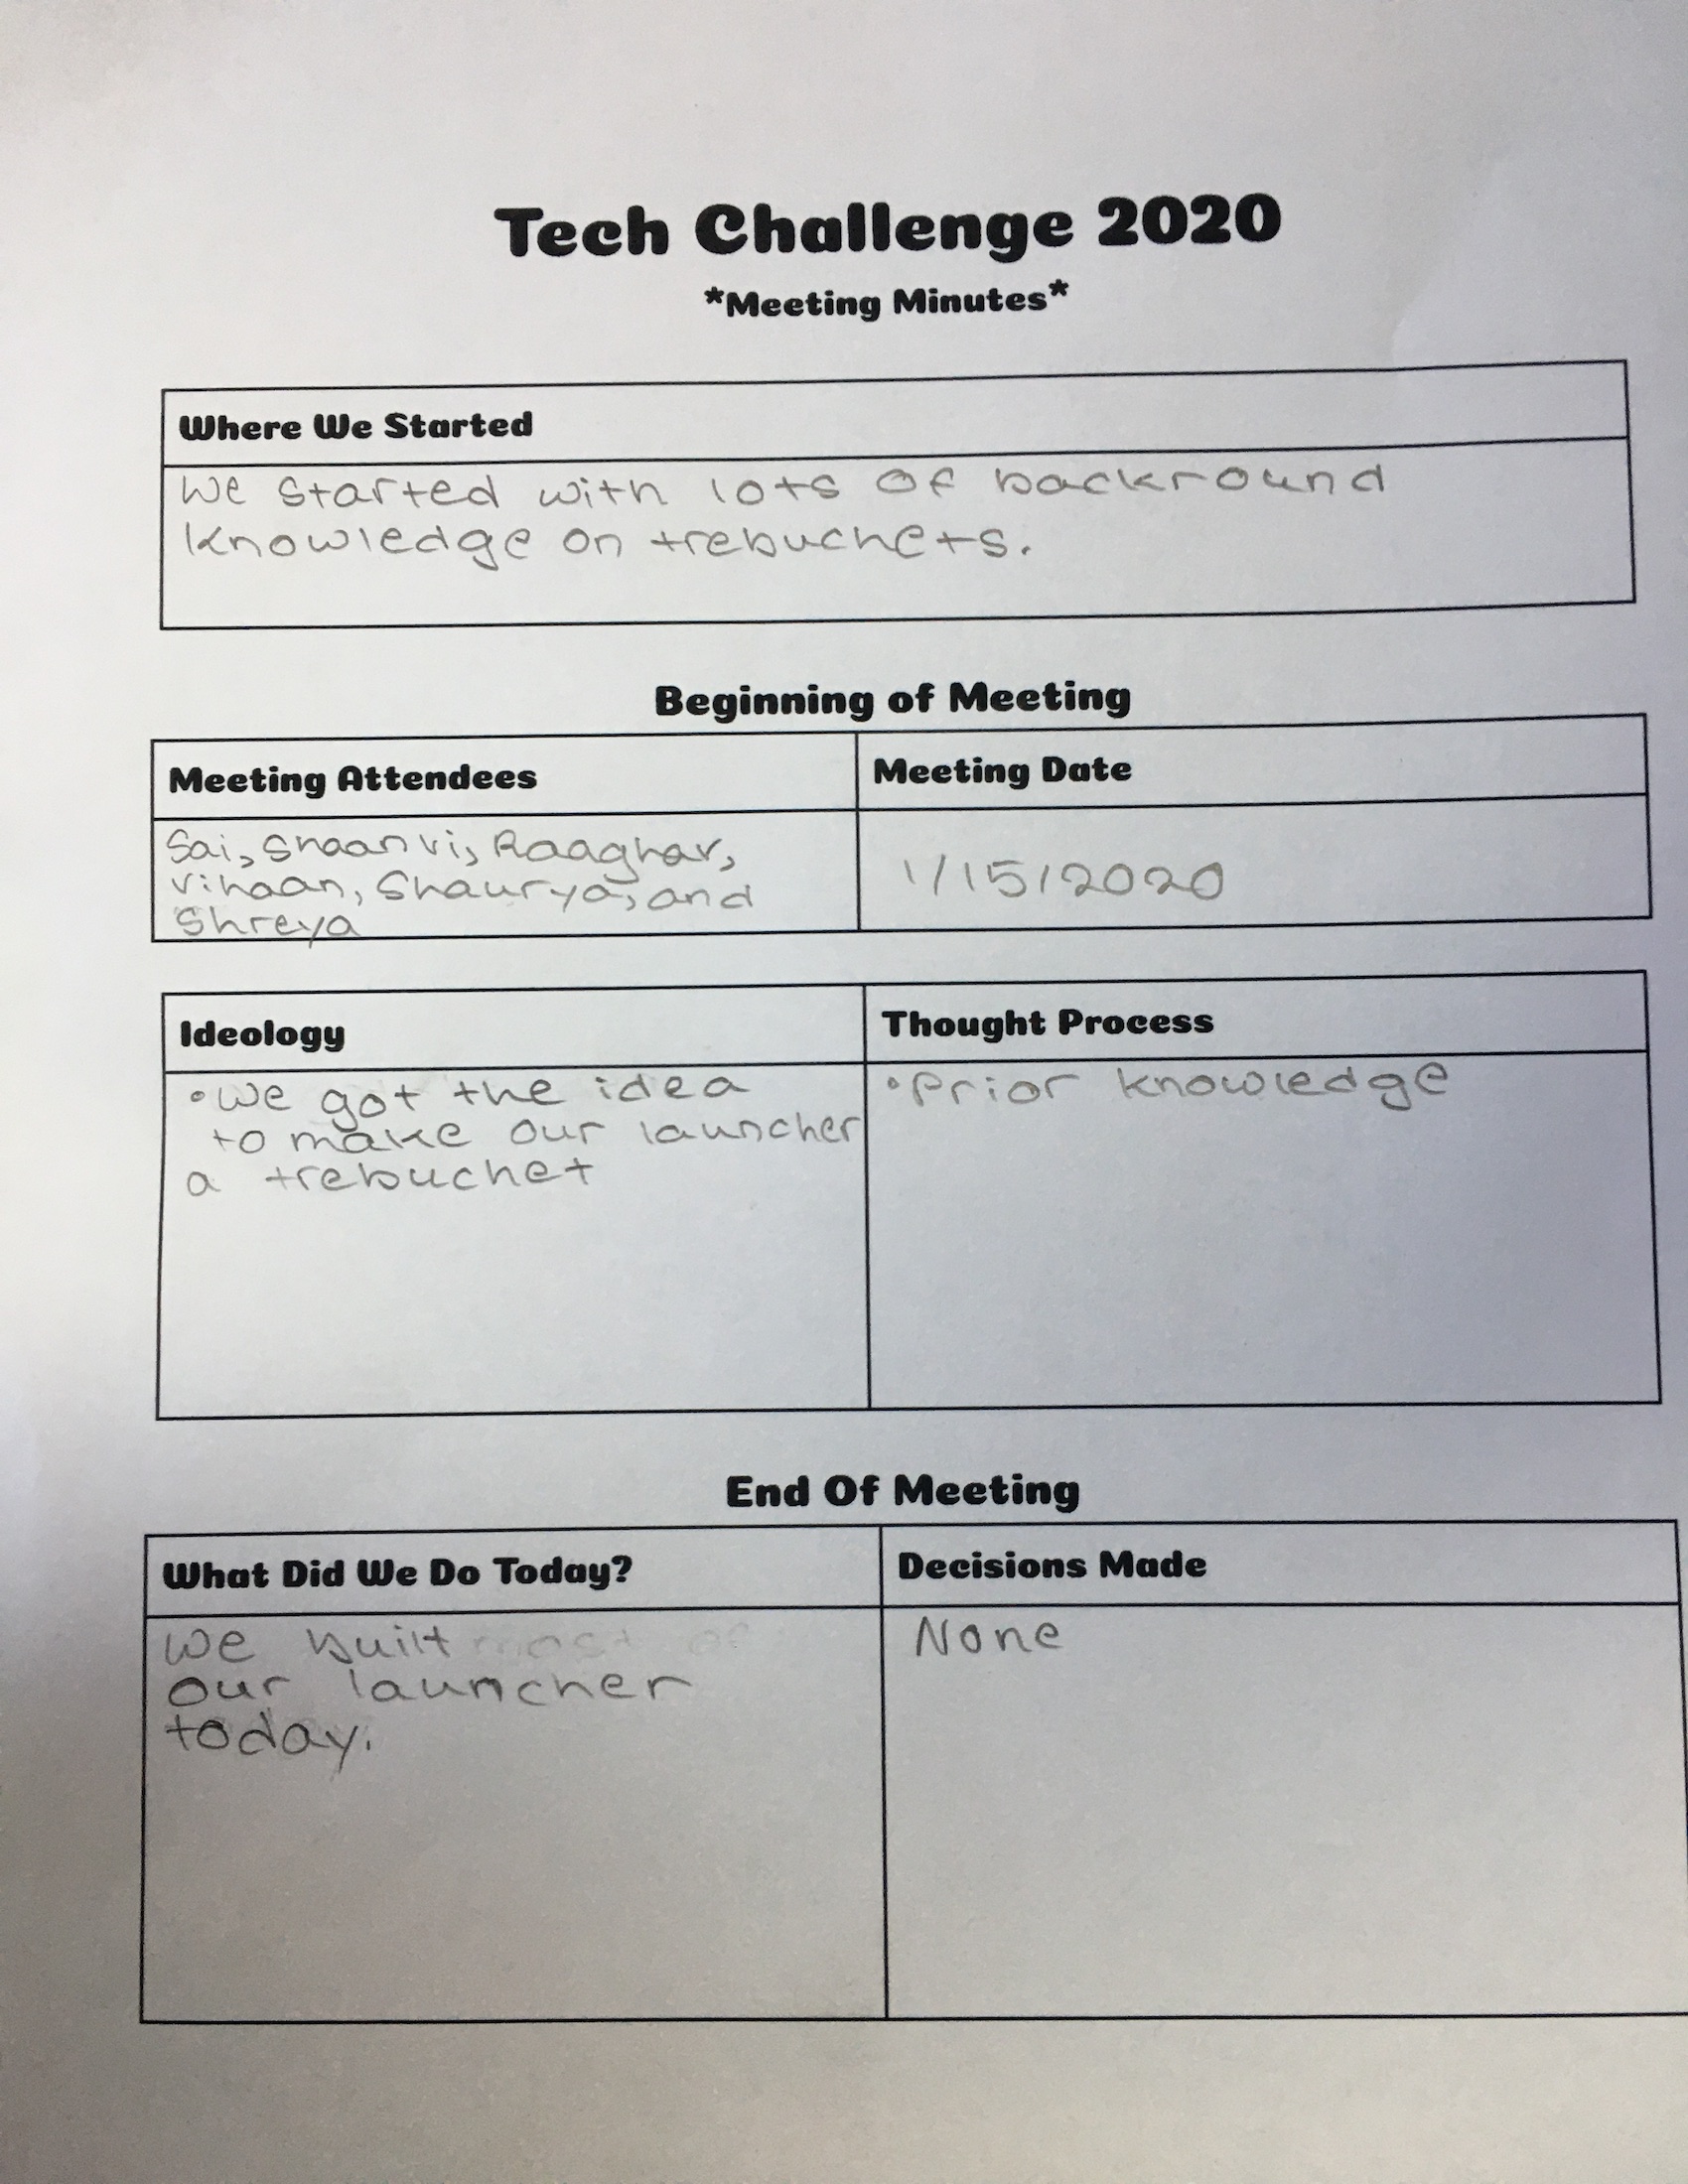 Tech Challenge 2020
*Meeting Minutes*
Where We Started
We started with lots of backround
knowledge on trebuchets.
Beginning of Meeting
Meeting Attendees
Meeting Date
Sai, Shaanvi, Raaghav,
Vihaan, Shaurya, and
Shreya
1/15/2020
Ideology
Thought Process
•We got the idea
to make our launcher
a trebuchet
•Prior knowledge
End Of Meeting
What Did We Do Today?
Decisions Made
We built
our launcher
today.
None